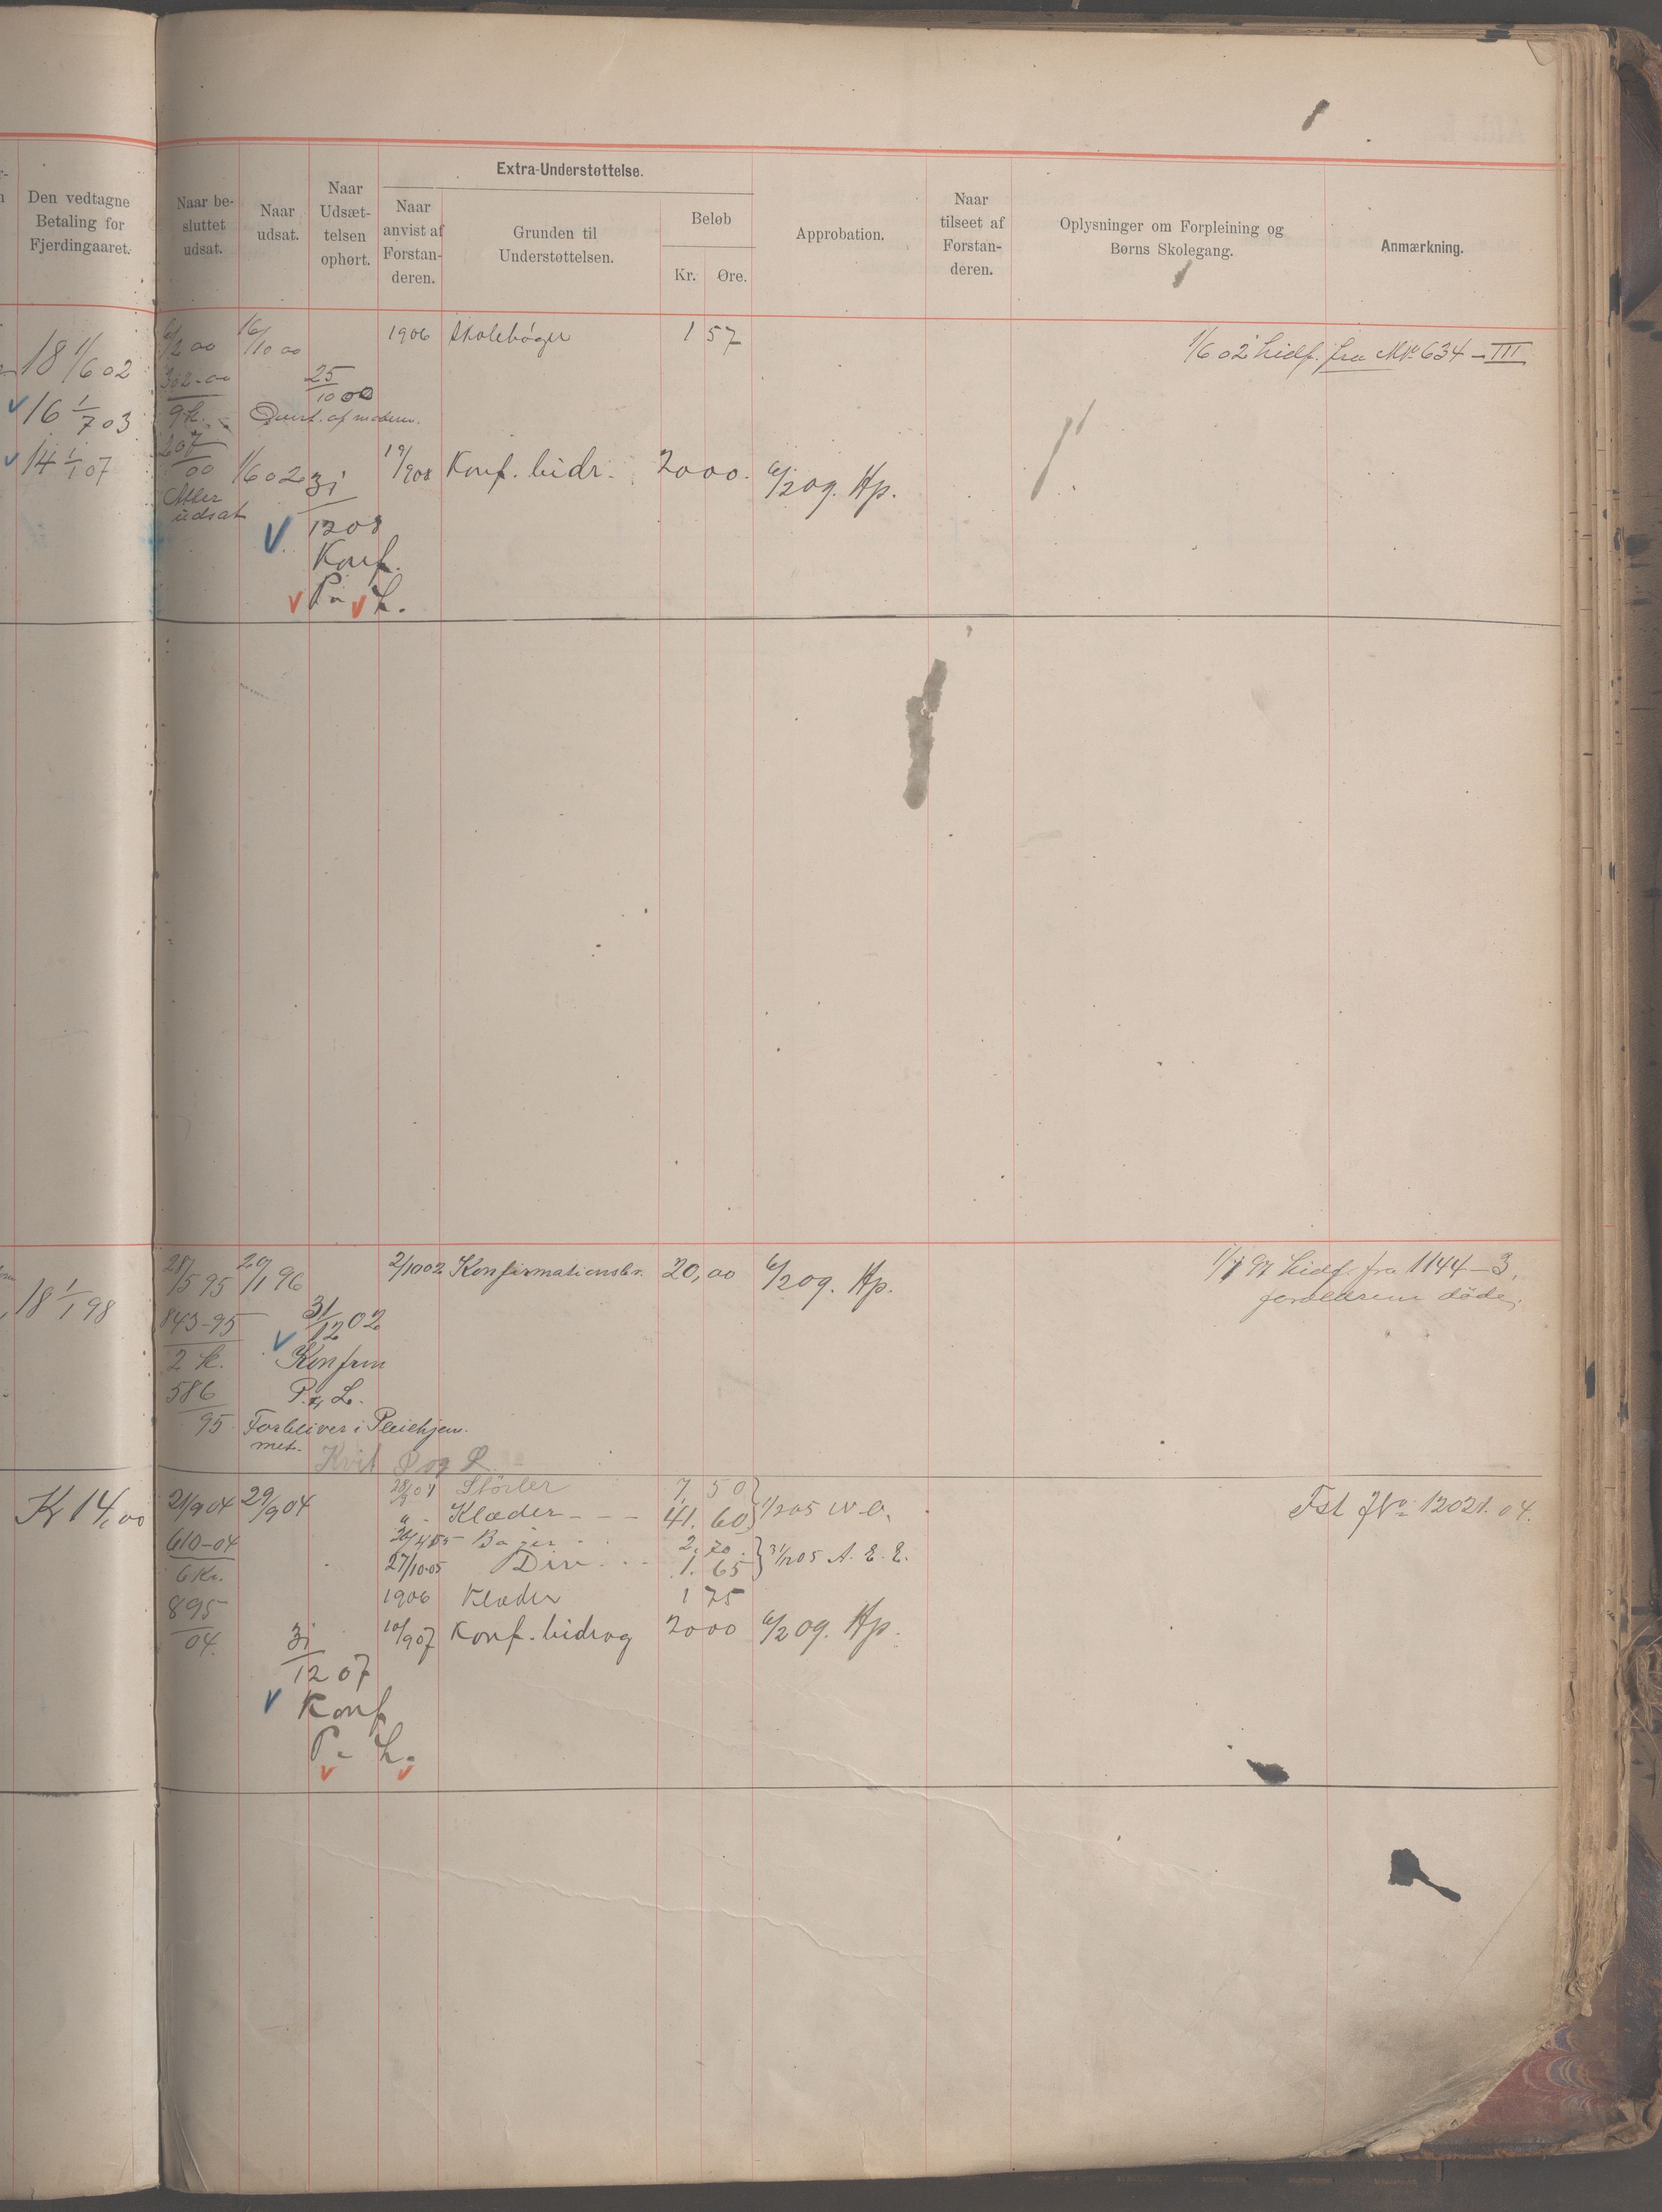 Den vedtagne
Betaling for
Fjerdingaaret.
Naar be-
sluttet
udsat.
Naar
udsat.
Naar
Udsæt-
telsen
ophørt.
Extra-Understøttelse.
Naar
anvist af
Forstan-
deren.
Grunden til
Understøttelsen.
Beløb
Kr. Øre.
Approbation.
Naar
tilseet af
Forstan-
deren.
Oplysninger om Forpleining og
Børns Skolegang.
Anmærkning.
18 1/6 02
16 1/7 03
14 1/1 07
6/2 00 16/10 00
302-00
9 k.
207
00
Atter
udsat
25
10 00
af moderen.
1/6 02 31
12 08
Konf.
P. L.
1906 Skolebøger 1 57
19/9 08 Konf. bidr. 20 00. 6/2 09. Hp.
1/6 02 hidf. fra No 634-III
18 1/1 98
28/5 95 20/1 96
843-95
2 k.
586
95
31
12 02
Konfirm
P. & L.
Forbliver i Pleiehjem-
met.
Kvit P og L
2/10 02 Konfirmationsbr. 20,00 6/2 09. Hp.
1/1 97 hidf. fra 1144-3,
forældrene døde.
Kr 14,00
21/9 04 29/9 04
610-04
6 Kr.
895
04.
31
12 07
Konf
P. L.
28/9 04 Støvler 7,50
" - Klæder - - - 41.60 1/2 05 W.O.
26/4 05 Bøger 2.70
27/10 05 Div 1.65 31/12 05 A. E. E.
1906 Klæder 1 75
10/9 07 Konf. bidrag 20 00 6/2 09. Hp.
Fst JNo 12021. 04.